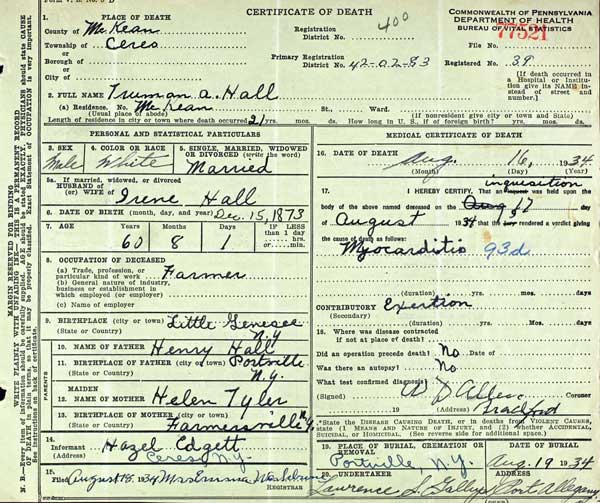 Form V. S. No. 5 B
CERTIFICATE OF DEATH
COMMONWEALTH OF PENNSYLVANIA
DEPARTMENT OF HEALTH
BUREAU OF VITAL STATISTICS
1. PLACE OF DEATH
County of McKean
Township of Ceres
Borough of or
City of
Registration District No. 400
Primary Registration District No. 42-02-83
File No. 77521
Registered No. 39
(If death occurred in a Hospital or Institution give its NAME instead of street and number.)
2. FULL NAME Truman A. Hall
(a) Residence. No. McKean St., Ward.
(Usual place of abode) (If nonresident give city or town and State)
Length of residence in city or town where death occurred 21 yrs. mos. ds. How long in U. S., if of foreign birth? yrs. mos. ds.
PERSONAL AND STATISTICAL PARTICULARS
3. SEX Male
4. COLOR OR RACE White
5. SINGLE, MARRIED, WIDOWED OR DIVORCED (write the word) Married
5a. If married, widowed, or divorced
HUSBAND of
(or) WIFE of Irene Hall
6. DATE OF BIRTH (month, day, and year) Dec. 15, 1873
7. AGE Years Months Days IF LESS than 1 day
60 8 1 hrs. or min.
8. OCCUPATION OF DECEASED
(a) Trade, profession, or particular kind of work Farmer
(b) General nature of industry, business or establishment in which employed (or employer)
(c) Name of employer
9. BIRTHPLACE (city or town) Little Genesee
(State or Country) N.Y
PARENTS
10. NAME OF FATHER Henry Hall
11. BIRTHPLACE OF FATHER (city or town) Portville
(State or Country) N.Y.
MAIDEN
12. NAME OF MOTHER Helen Tyler
13. BIRTHPLACE OF MOTHER (city or town) Farmersville N.Y
(State or Country)
14. Informant Hazel Edgett
(Address) Ceres N.Y.
15. Filed August 18, 1934 Mrs Emma
REGISTRAR
MEDICAL CERTIFICATE OF DEATH
16. DATE OF DEATH Aug. 16, 1934
(Month) (Day) (Year)
17. I HEREBY CERTIFY, That an inquisition was held upon the
body of the above named deceased on the 17 day
of August 1934 that the jury rendered a verdict giving
the cause of death as follows:
Myocarditis 93d
(duration) yrs. mos. days
CONTRIBUTORY Exertion
(Secondary)
(duration) yrs. Mos. days
18. Where was disease contracted
if not at place of death?
Did an operation precede death? No Date of
Was there an autopsy? No
What test confirmed diagnosis?
(Signed) Coroner
19 (Address) Bradford
*State the DISEASE CAUSING DEATH, or in deaths from VIOLENT CAUSES, state (1) MEANS AND NATURE OF INJURY, and (2) whether ACCIDENTAL, SUICIDAL, or HOMICIDAL. (See reverse side for additional space.)
19. PLACE OF BURIAL, CREMATION OR REMOVAL Portville N.Y
DATE OF BURIAL Aug. 19 1934
20. UNDERTAKER Lawrence S.
ADDRESS Port Allegany